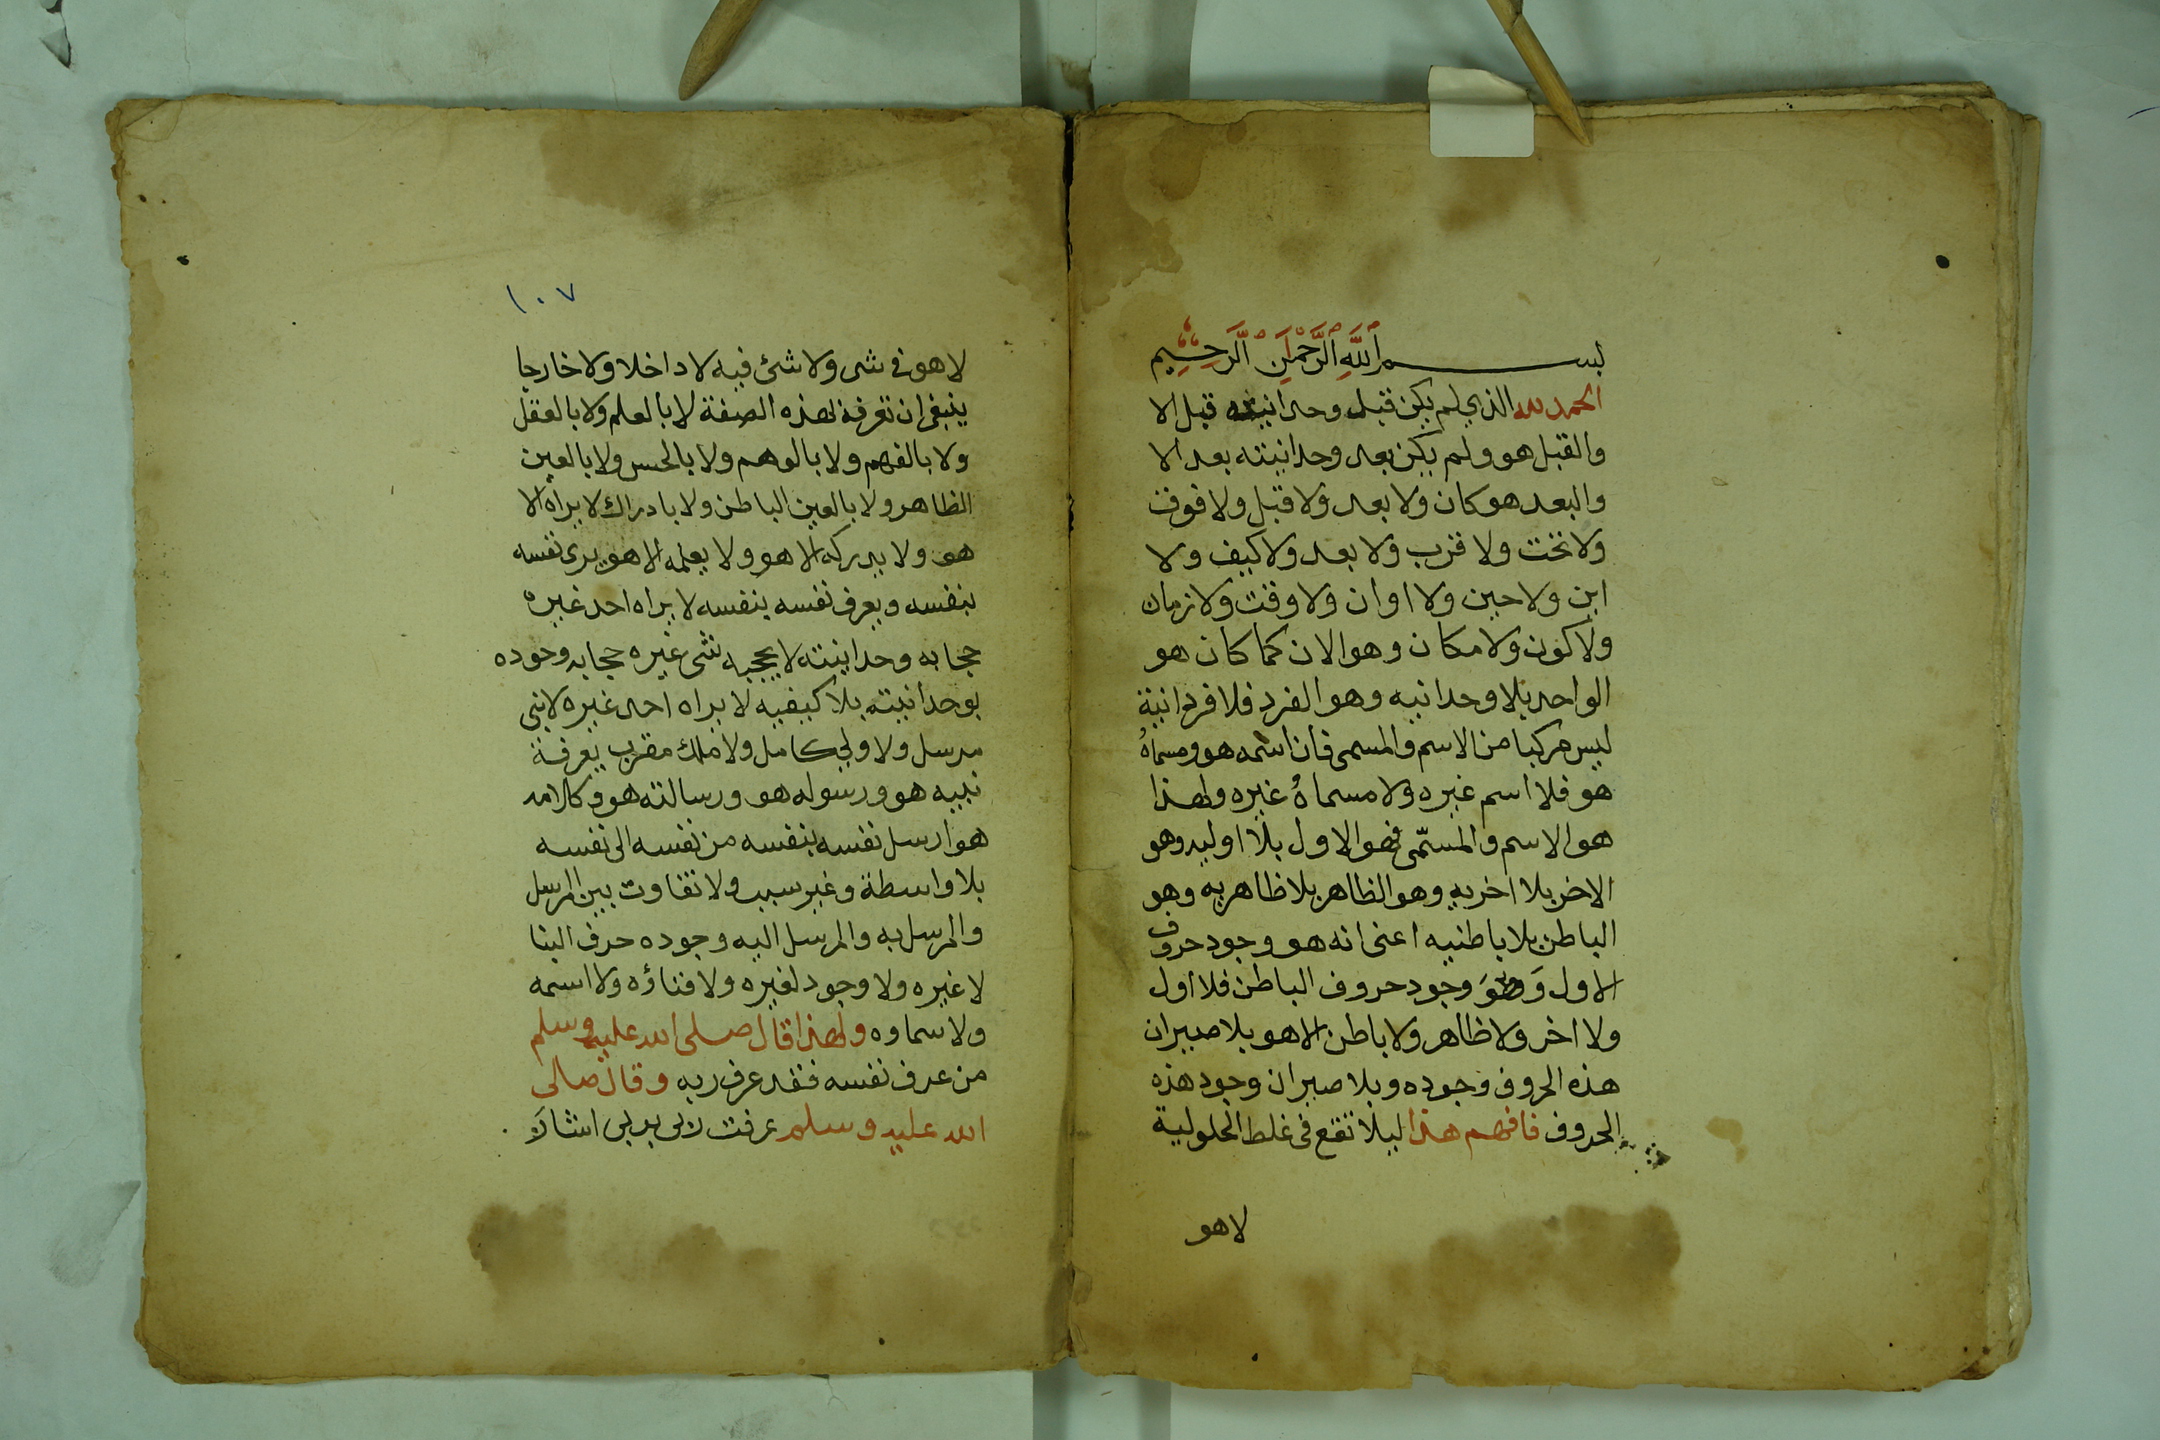 بسم اللّٰه الرَّحْمٰن الرَّحِيم
الحمد لله الذي لم يكن قبل وحدانيته قبل الا
والقبل هو ولم يكن بعد وحدانيته بعد الا
والبعد هو كان ولا بعد ولا قبل ولا فوق
ولا تحت ولا قرب ولا بعد ولا كيف ولا
اين ولا حين ولا اوان ولا وقت ولا زمان
ولا كون ولا مكان وهو الان كما كان هو
الواحد بلا وحدانيه وهو الفرد فلا فردانية
ليس مركبا من الاسم والمسمى فان اسمه هو ومسماهُ
هو فلا اسم غيره ولا مسماهُ غيره ولهذا
هو الاسم والمسمّى فهو الاول بلا اوليه وهو
الاخر بلا اخريه وهو الظاهر بلا ظاهريه وهو
الباطن بلا باطنيه اعنى انه هو وجود حروف
الاول وَهوَ وجود حروف الباطن فلا اول
ولا اخر ولا ظاهر ولا باطن الا هو بلا صيران
هذه الحروف وجوده وبلا صيران وجود هذه
الحروف فافهم هذا ليلا تقع فى غلط الحلولية
لا هو
١٠٧
لا هو في شى ولا شئ فيه لا داخلا ولا خارجا
ينبغى ان تعرفة لهذه الصفة لا بالعلم ولا بالعقل
ولا بالفهم ولا بالوهم ولا بالحس ولا بالعين
الظاهر ولا بالعين الباطن ولا بادراك لا يراه الا
هو ولا يدركه الا هو ولا يعلمه الا هو يرى نفسه
بنفسه ويعرف نفسه بنفسه لا يراه احد غيره
حجابه وحدانيته لا يحجبه شى غيره حجابه وجوده
بوحدانيته بلا كيفيه لا يراه احد غيره لا نبى
مرسل ولا ولي كامل ولا ملك مقرب يعرفة
نبيه هو ورسوله هو ورسالته هو وكلامه
هو ارسل نفسه بنفسه من نفسه الى نفسه
بلا واسطة وغير سبب ولا تفاوت بين المرسل
والمرسل به والمرسل اليه وجوده حرف البنا
لا غيره ولا وجود لغيره ولا فناؤه ولا اسمه
ولا سماوه ولهذا قال صلى الله عليه وسلم
من عرف نفسه فقد عرف ربه وقال صلى
الله عليه وسلم عرفت ربى بربى اشارَ